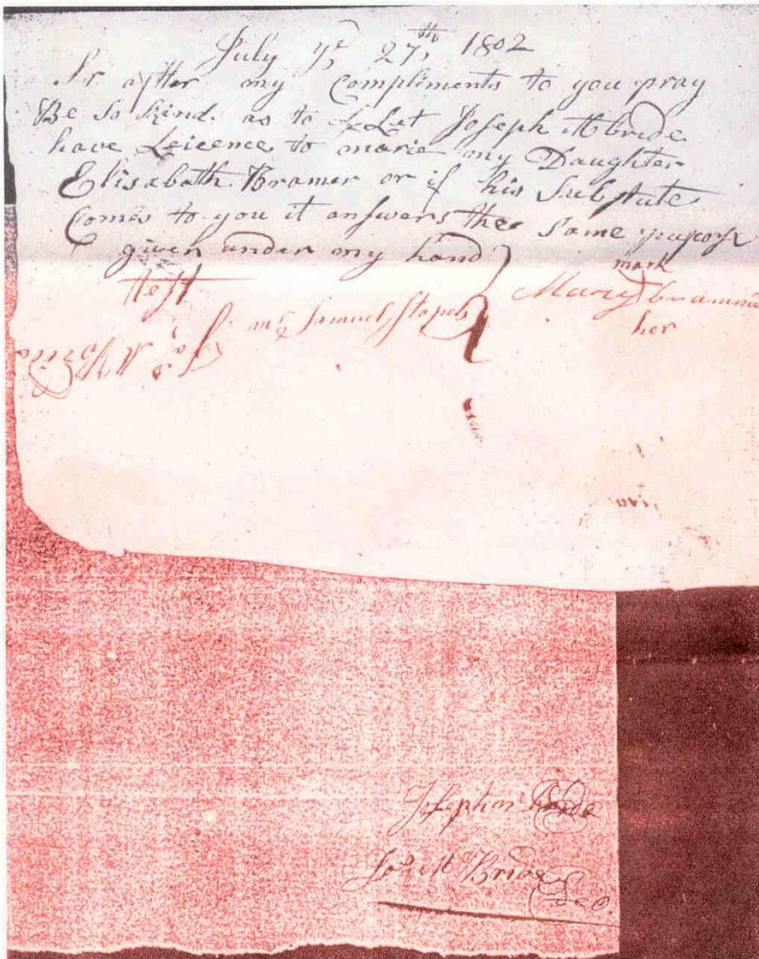 July ye, 27th, 1802
Sr after my Compliments to you pray
Be so kind as to Let Joseph Mcbride
have Leicence to marie my Daughter
Elisabath Bramer or if his Substute
Comes to you it answers the same purpose
given under my hand
mark
Test Mary brammer
her
mr Samuel Staples
Joseph mc bride
John McBride